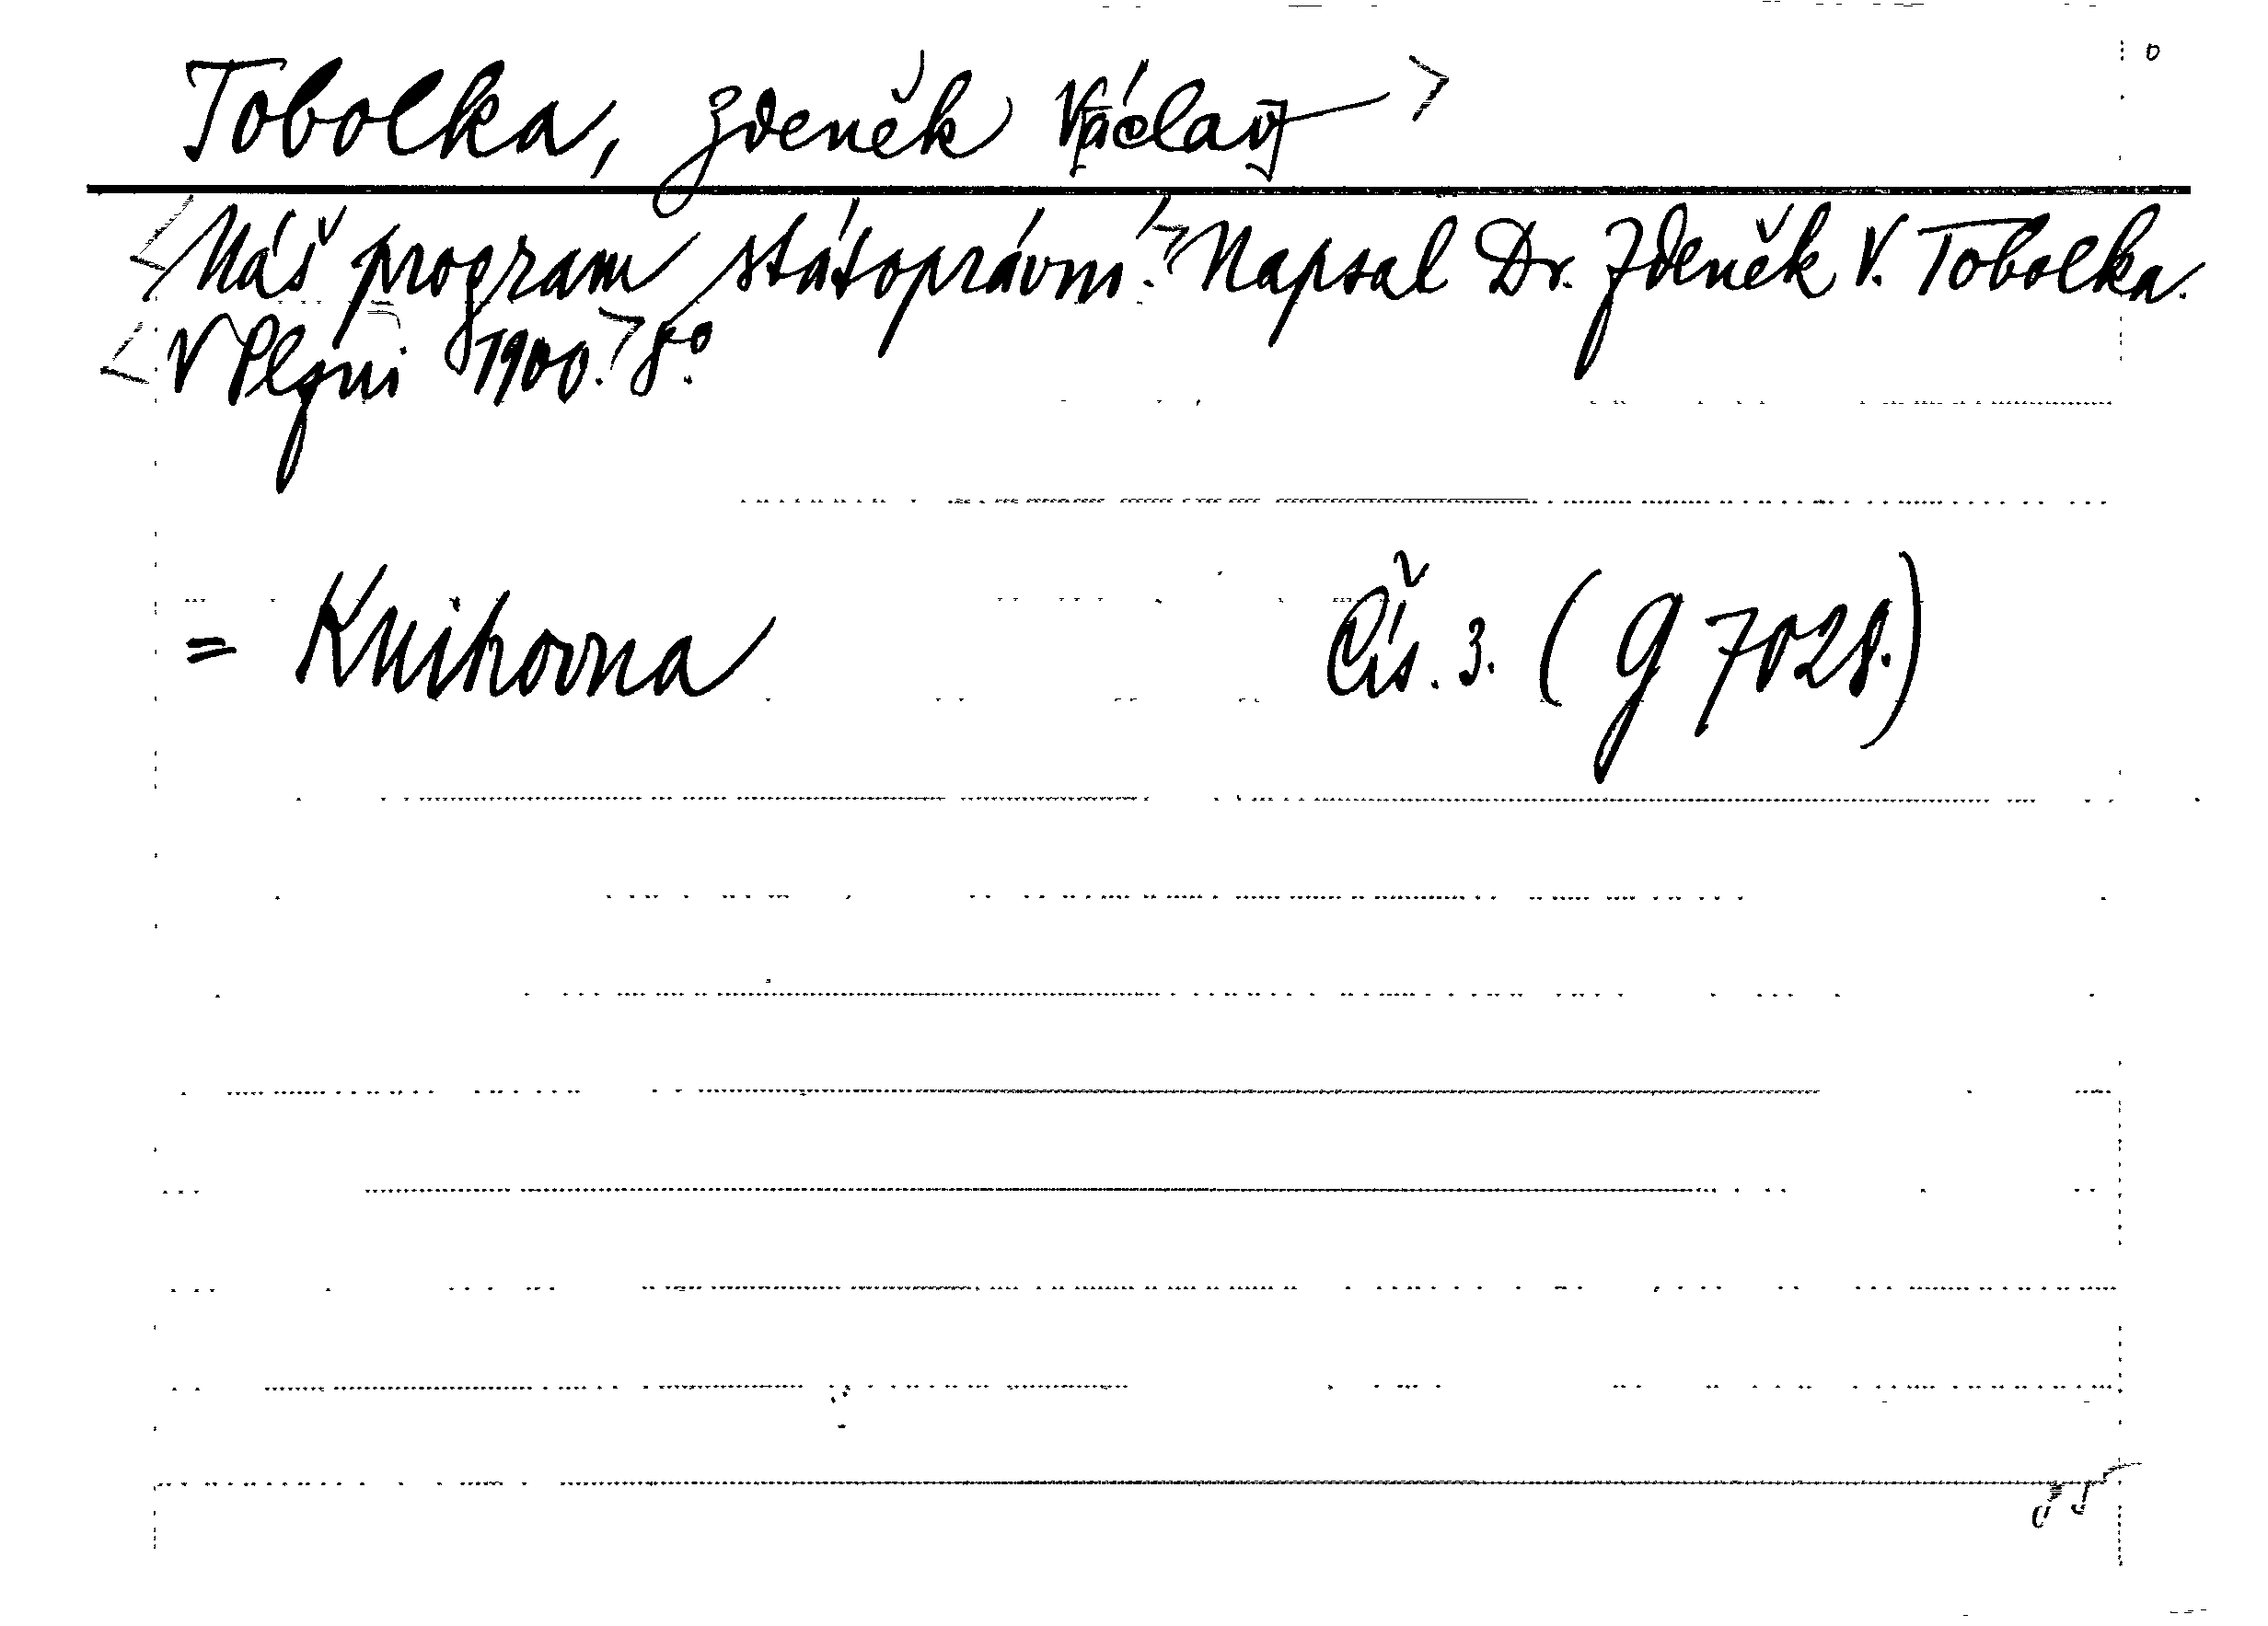 Tobolka, Zdeněk Václav >
<Náš program státoprávní.> Napsal Dr. Zdeněk V. Tobolka.
<V Plzni 1900.> 8º.
= Knihovna Čís. 3. (G 7028.)